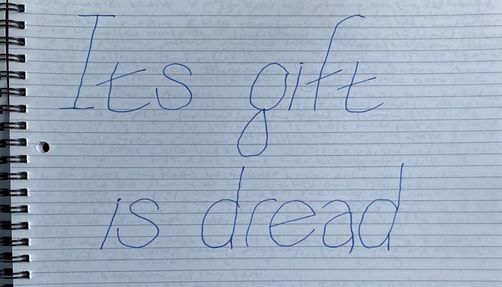 Its gift
is dread